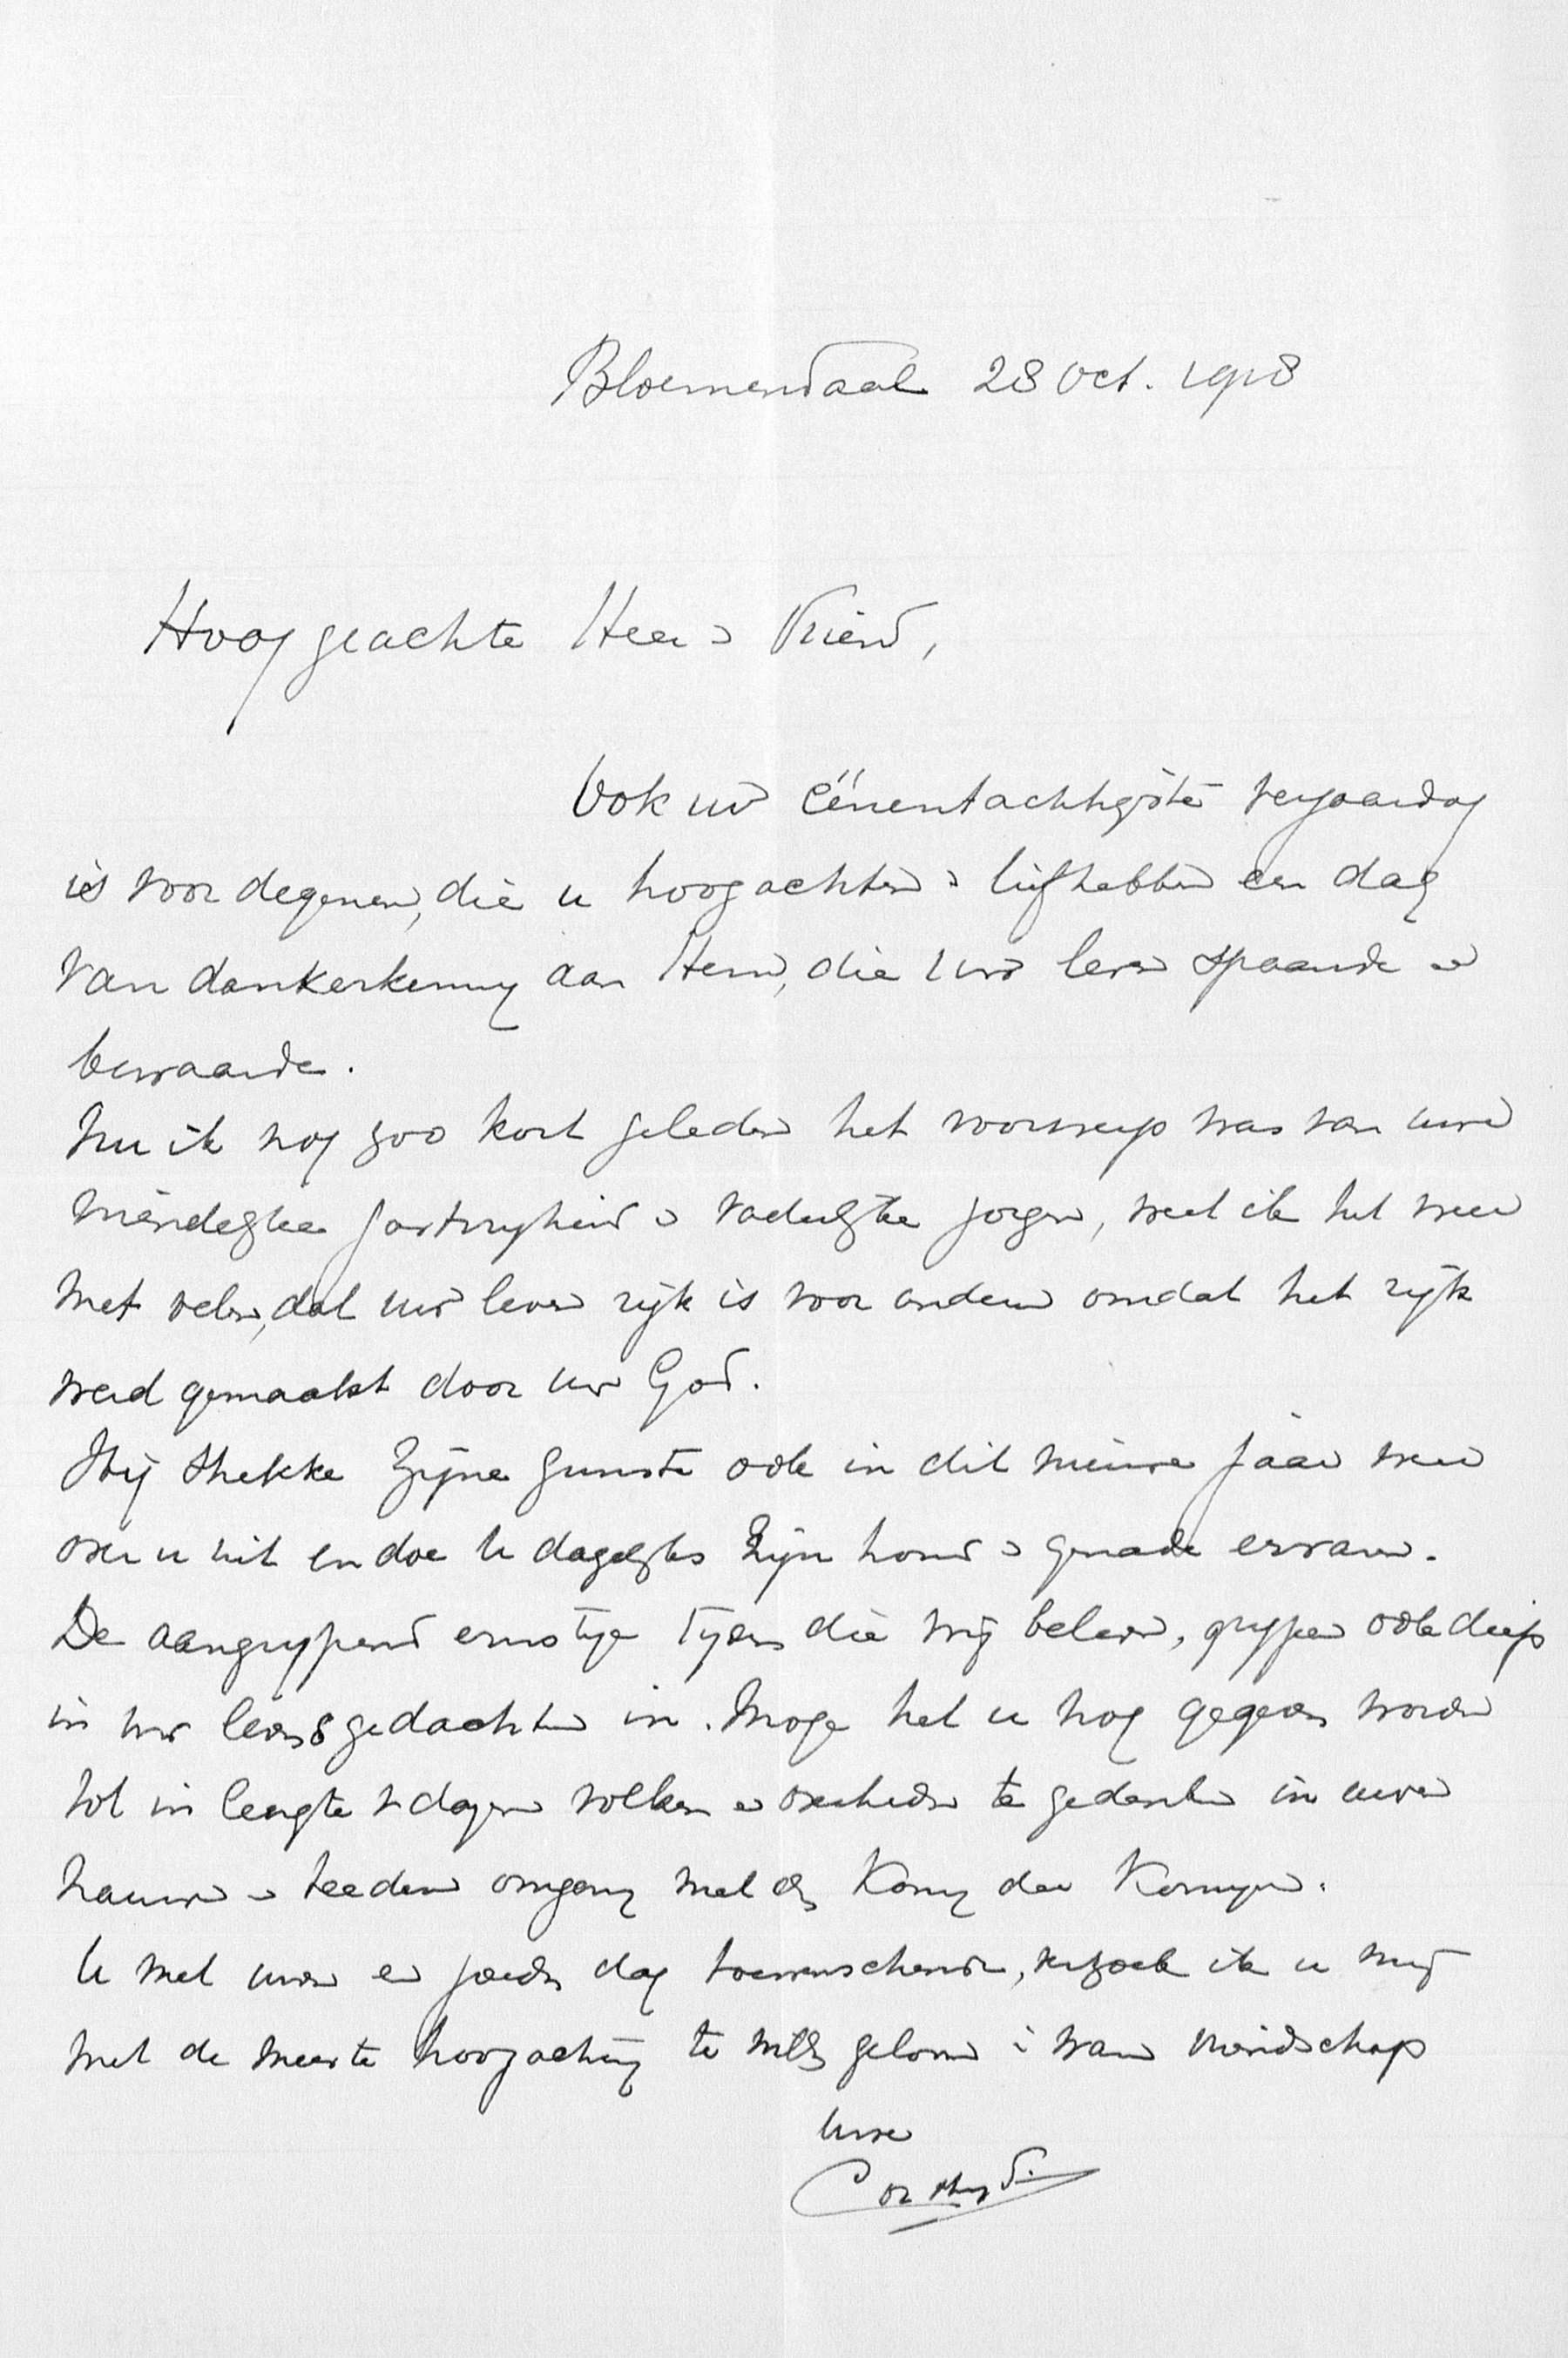 Bloemendaal 28 Oct. 1918
Hooggeachte Heer en Vriend,
Ook uw éénentachtigste verjaardag
is voor degenen, die u hoogachten en liefhebben een dag
van dankerkenning aan Hem, die uw leven spaarde en
bewaarde.
Nu ik nog zoo kort geleden het voorwerp was van uwe
vriendelijke gastvrijheid en vaderlijke zorgen, weet ik het weer
met velen, dat uw leven rijk is voor anderen omdat het rijk
werd gemaakt door uw God.
Hij strekke Zijne gunste ook in dit nieuwe jaar weer
over u uit en doe u dagelijks Zijn trouw en genade ervaren.
De aangrijpend ernstige tijden die wij beleven, grijpen ook diep
in uw levensgedachten in. Moge het u nog gegeven worden
tot in lengte v dagen volken en overheden te gedenken in uwen
nauwen en teederen omgang met den Koning der Koningen.
U met uwen een goeden dag toewenschende, verzoek ik u mij
met de meeste hoogachting te willen gelooven in ware vriendschap
Uwe